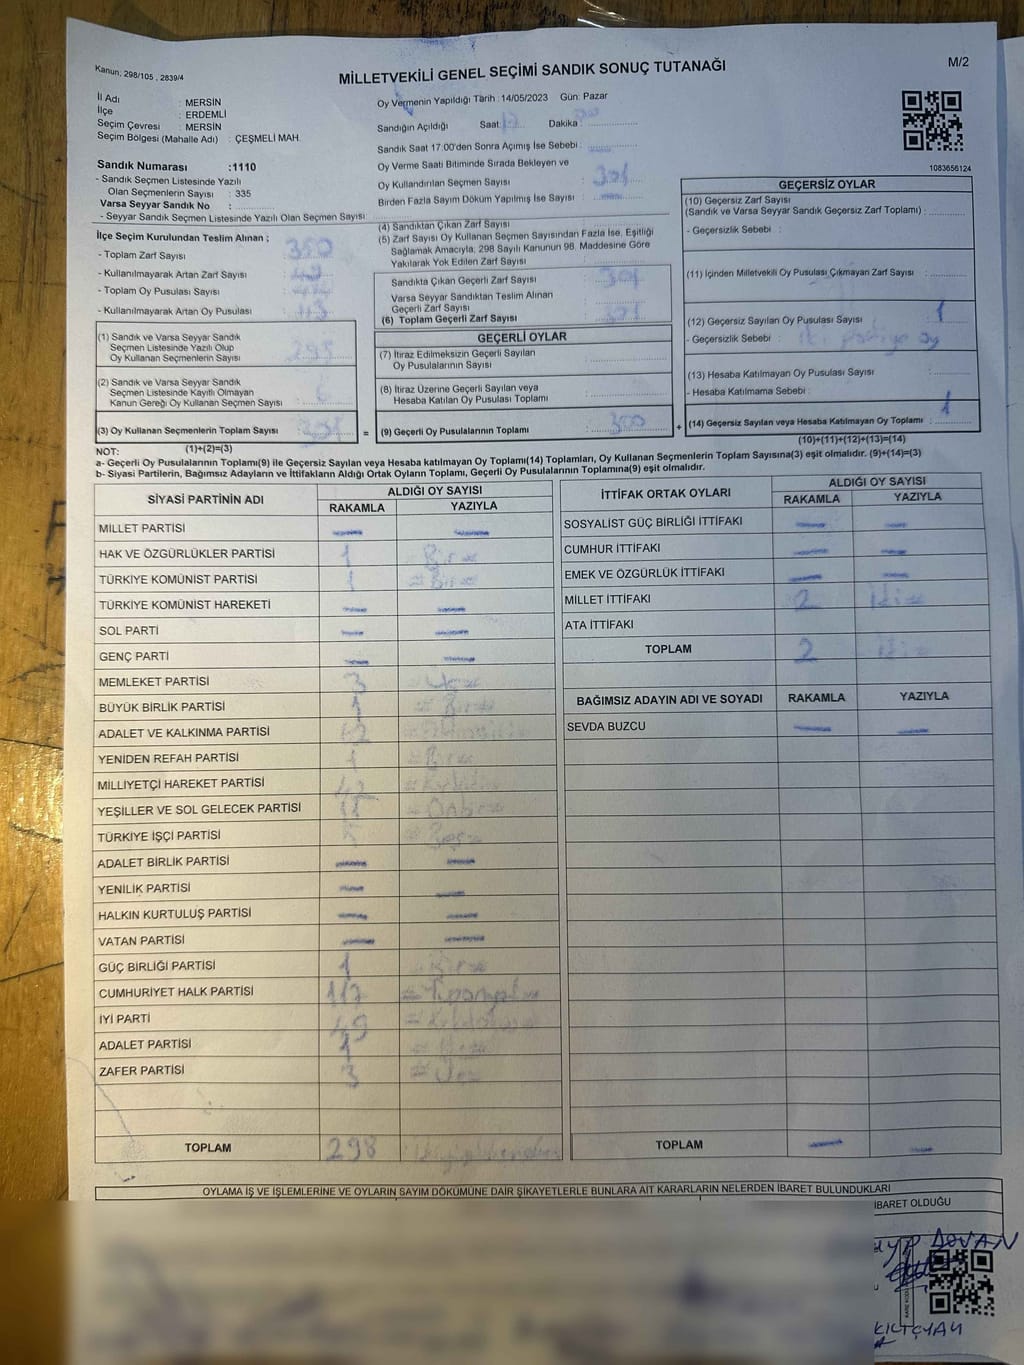 Kanun, 298/105 , 2839/4
MİLLETVEKİLİ GENEL SEÇİMİ SANDIK SONUÇ TUTANAĞI
M/2
İl Adı : MERSİN
İlçe : ERDEMLİ
Seçim Çevresi : MERSİN
Seçim Bölgesi (Mahalle Adı) : ÇEŞMELİ MAH.
Sandık Numarası :1110
- Sandık Seçmen Listesinde Yazılı
Olan Seçmenlerin Sayısı : 335
Varsa Seyyar Sandık No :
- Seyyar Sandık Seçmen Listesinde Yazılı Olan Seçmen Sayısı:
Oy Vermenin Yapıldığı Tarih :14/05/2023 Gün: Pazar
Sandığın Açıldığı Saat: Dakika :
Sandık Saat 17:00'den Sonra Açımış İse Sebebi :
Oy Verme Saati Bitiminde Sırada Bekleyen ve
Oy Kullandırılan Seçmen Sayısı : 301
Birden Fazla Sayım Döküm Yapılmış İse Sayısı :
1083656124
İlçe Seçim Kurulundan Teslim Alınan ;
- Toplam Zarf Sayısı : 350
- Kullanılmayarak Artan Zarf Sayısı :
- Toplam Oy Pusulası Sayısı :
- Kullanılmayarak Artan Oy Pusulası :
(1) Sandık ve Varsa Seyyar Sandık
Seçmen Listesinde Yazılı Olup
Oy Kullanan Seçmenlerin Sayısı : 295
(2) Sandık ve Varsa Seyyar Sandık
Seçmen Listesinde Kayıtlı Olmayan
Kanun Gereği Oy Kullanan Seçmen Sayısı : 6
(3) Oy Kullanan Seçmenlerin Toplam Sayısı : 301
(1)+(2)=(3)
(4) Sandıktan Çıkan Zarf Sayısı :
(5) Zarf Sayısı Oy Kullanan Seçmen Sayısından Fazla İse, Eşitliği
Sağlamak Amacıyla, 298 Sayılı Kanunun 98. Maddesine Göre
Yakılarak Yok Edilen Zarf Sayısı :
Sandıkta Çıkan Geçerli Zarf Sayısı : 301
Varsa Seyyar Sandıktan Teslim Alınan
Geçerli Zarf Sayısı :
(6) Toplam Geçerli Zarf Sayısı : 301
GEÇERLİ OYLAR
(7) İtiraz Edilmeksizin Geçerli Sayılan
Oy Pusulalarının Toplamı :
(8) İtiraz Üzerine Geçerli Sayılan veya
Hesaba Katılan Oy Pusulası Toplamı :
= (9) Geçerli Oy Pusulalarının Toplamı : 300
GEÇERSİZ OYLAR
(10) Geçersiz Zarf Sayısı
(Sandık ve Varsa Seyyar Sandık Geçersiz Zarf Toplamı) :
- Geçersizlik Sebebi :
(11) İçinden Milletvekili Oy Pusulası Çıkmayan Zarf Sayısı :
(12) Geçersiz Sayılan Oy Pusulası Sayısı : 1
- Geçersizlik Sebebi :
(13) Hesaba Katılmayan Oy Pusulası Sayısı :
- Hesaba Katılmama Sebebi :
+ (14) Geçersiz Sayılan veya Hesaba Katılmayan Oy Toplamı : 1
(10)+(11)+(12)+(13)=(14)
NOT:
a- Geçerli Oy Pusulalarının Toplamı(9) ile Geçersiz Sayılan veya Hesaba katılmayan Oy Toplamı(14) Toplamları, Oy Kullanan Seçmenlerin Toplam Sayısına(3) eşit olmalıdır. (9)+(14)=(3)
b- Siyasi Partilerin, Bağımsız Adayların ve İttifakların Aldığı Ortak Oyların Toplamı, Geçerli Oy Pusulalarının Toplamına(9) eşit olmalıdır.
SİYASİ PARTİNİN ADI ALDIĞI OY SAYISI
RAKAMLA YAZIYLA
MİLLET PARTİSİ
HAK VE ÖZGÜRLÜKLER PARTİSİ 1 Bir
TÜRKİYE KOMÜNİST PARTİSİ 1 Bir
TÜRKİYE KOMÜNİST HAREKETİ
SOL PARTİ
GENÇ PARTİ
MEMLEKET PARTİSİ 3
BÜYÜK BİRLİK PARTİSİ 1 Bir
ADALET VE KALKINMA PARTİSİ
YENİDEN REFAH PARTİSİ 1 Bir
MİLLİYETÇİ HAREKET PARTİSİ
YEŞİLLER VE SOL GELECEK PARTİSİ
TÜRKİYE İŞÇİ PARTİSİ 5 Beş
ADALET BİRLİK PARTİSİ
YENİLİK PARTİSİ
HALKIN KURTULUŞ PARTİSİ
VATAN PARTİSİ
GÜÇ BİRLİĞİ PARTİSİ 1 Bir
CUMHURİYET HALK PARTİSİ 117
İYİ PARTİ 49
ADALET PARTİSİ 1
ZAFER PARTİSİ 3
TOPLAM 298
İTTİFAK ORTAK OYLARI ALDIĞI OY SAYISI
RAKAMLA YAZIYLA
SOSYALİST GÜÇ BİRLİĞİ İTTİFAKI
CUMHUR İTTİFAKI
EMEK VE ÖZGÜRLÜK İTTİFAKI
MİLLET İTTİFAKI 2 İki
ATA İTTİFAKI
TOPLAM 2 İki
BAĞIMSIZ ADAYIN ADI VE SOYADI RAKAMLA YAZIYLA
SEVDA BUZCU
TOPLAM
OYLAMA İŞ VE İŞLEMLERİNE VE OYLARIN SAYIM DÖKÜMÜNE DAİR ŞİKAYETLERLE BUNLARA AİT KARARLARIN NELERDEN İBARET BULUNDUKLARI
İBARET OLDUĞU